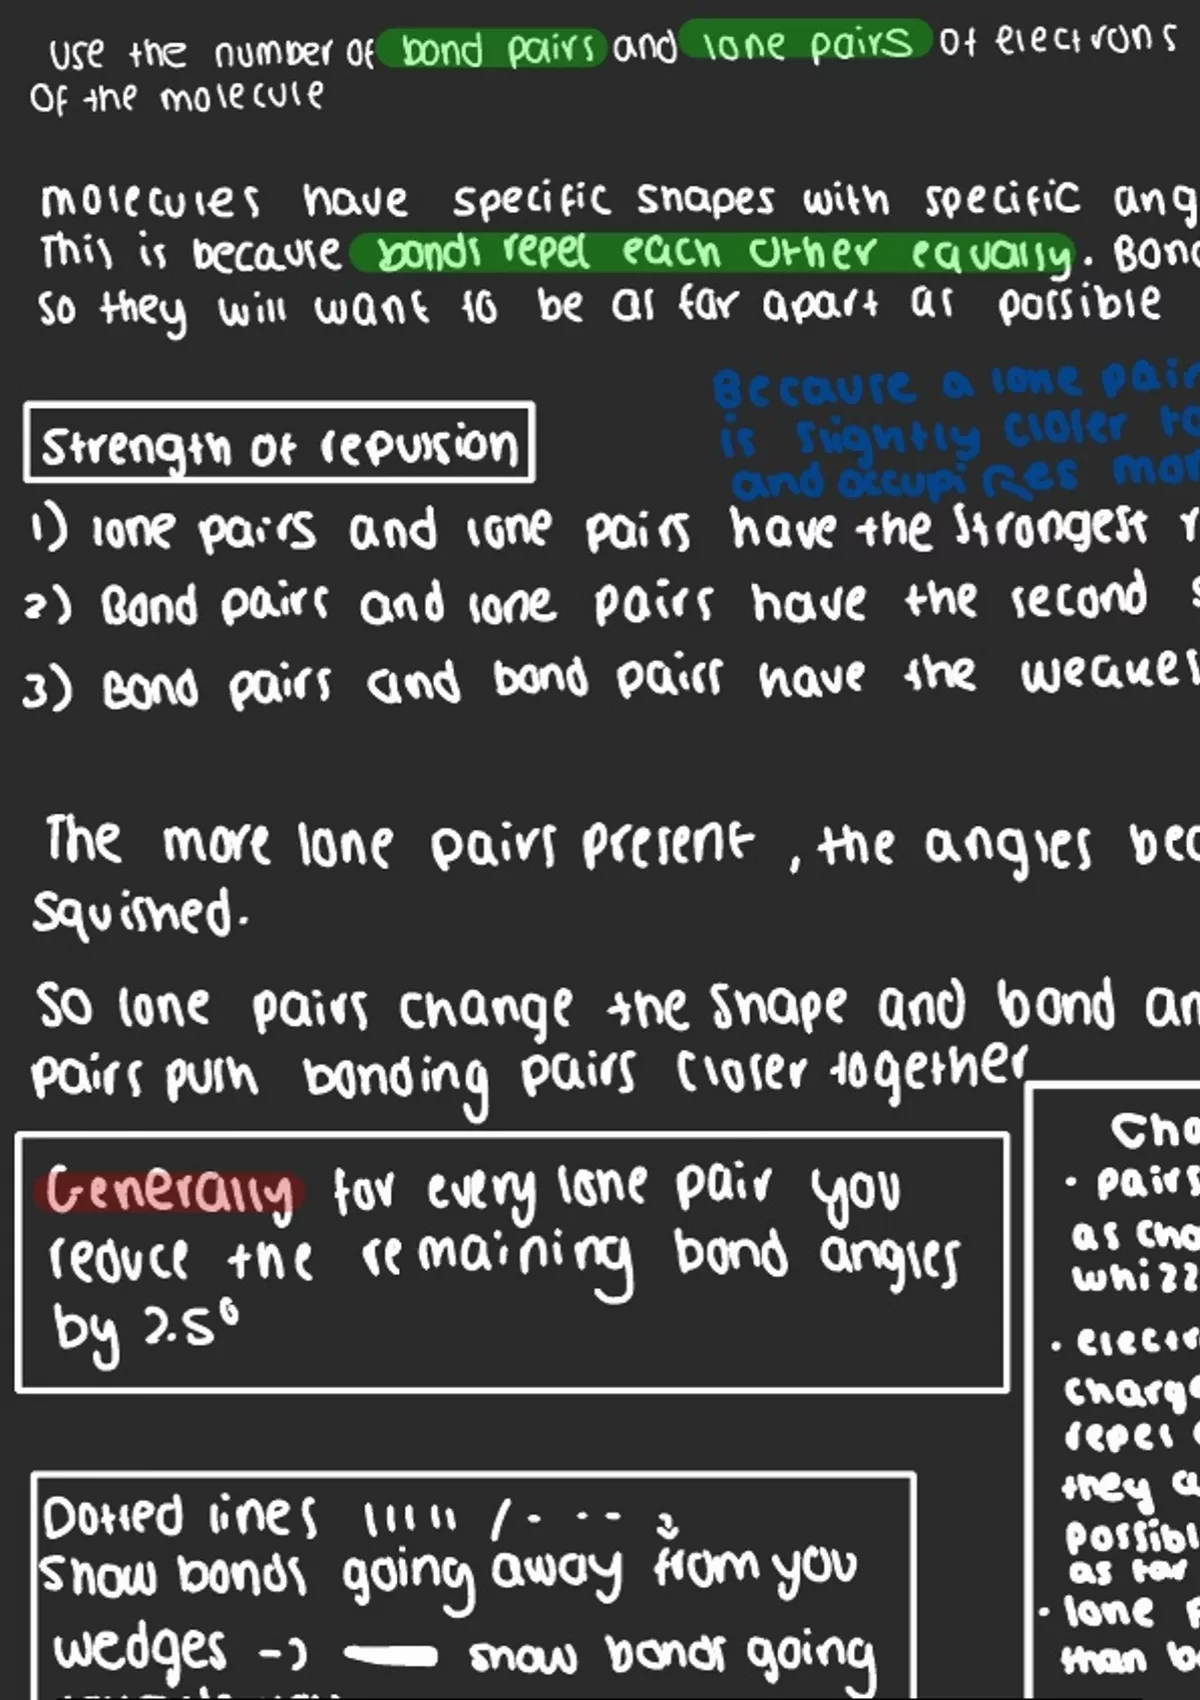 Use the number of bond pairs and lone pairs of electrons
Of the molecule
molecules have specific shapes with specific ang
This is because bonds repel each other equally. Bond
so they will want to be as far apart as possible
Because a lone pair
is slightly closer to
and occupires mor
Strength of repulsion
1) lone pairs and lone pairs have the strongest r
2) Bond pairs and lone pairs have the second s
3) Bond pairs and bond pairs have the weakes
The more lone pairs present, the angles bec
squished.
So lone pairs change the shape and bond an
pairs push bonding pairs closer together
Generally for every lone pair you
reduce the remaining bond angles
by 2.5°
Cha
• pairs
as cha
whizz
• electr
charge
repel
they a
possibl
as far
• lone p
than bo
Dotted lines
show bonds going away from you
wedges -> show bonds going